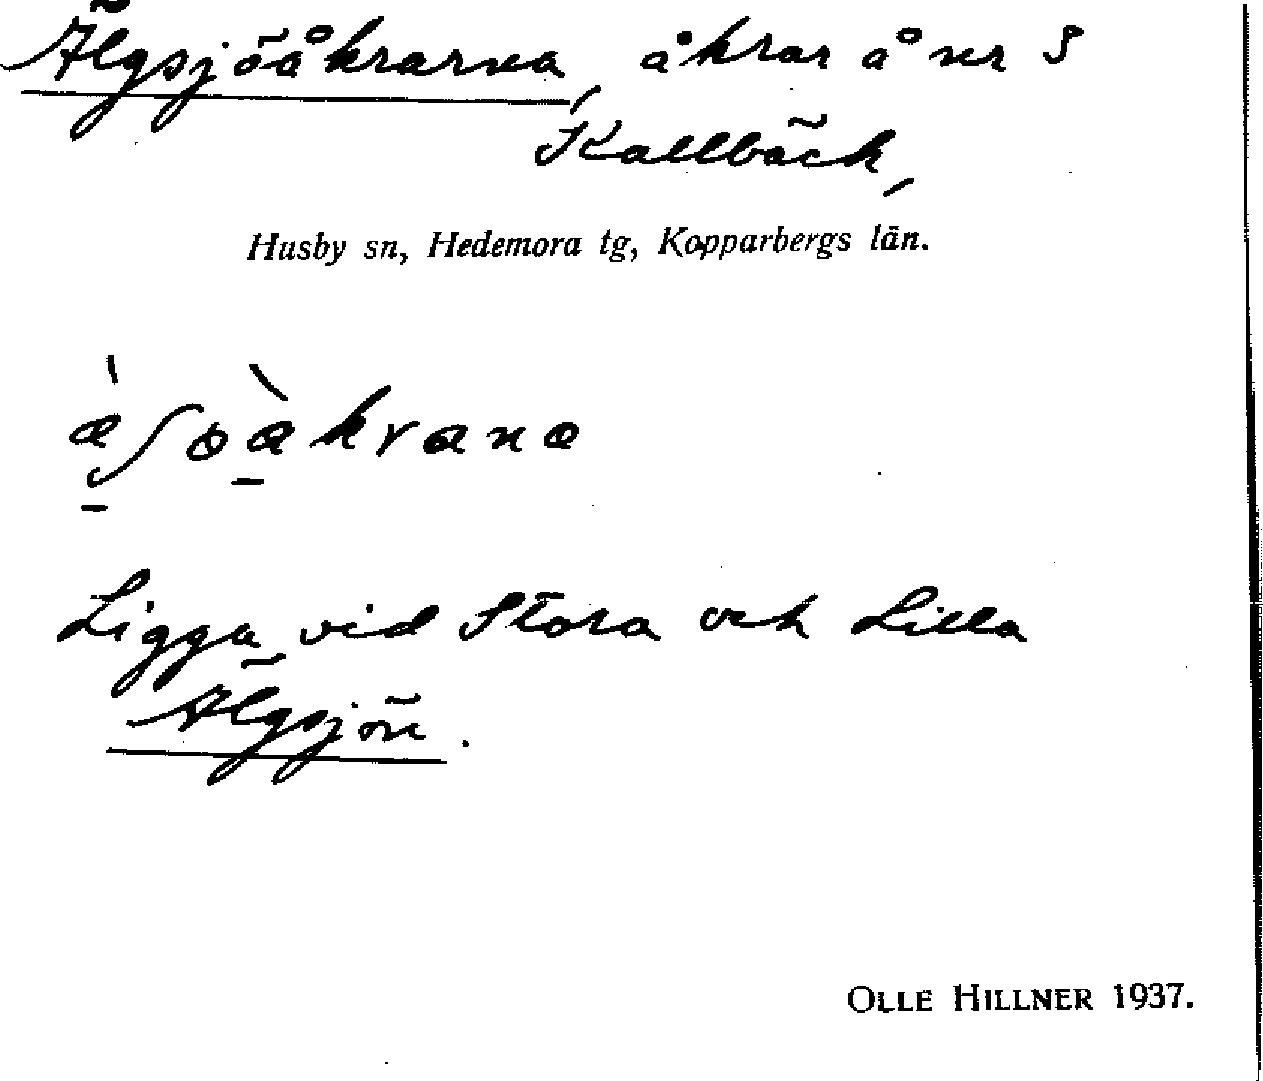 Älgsjöåkrarna, åkrar å nr 8
Kallbäck,
Husby sn, Hedemora tg, Kopparbergs län.
Ligga vid Stora och Lilla
Älgsjön.
OLLE HILLNER 1937.